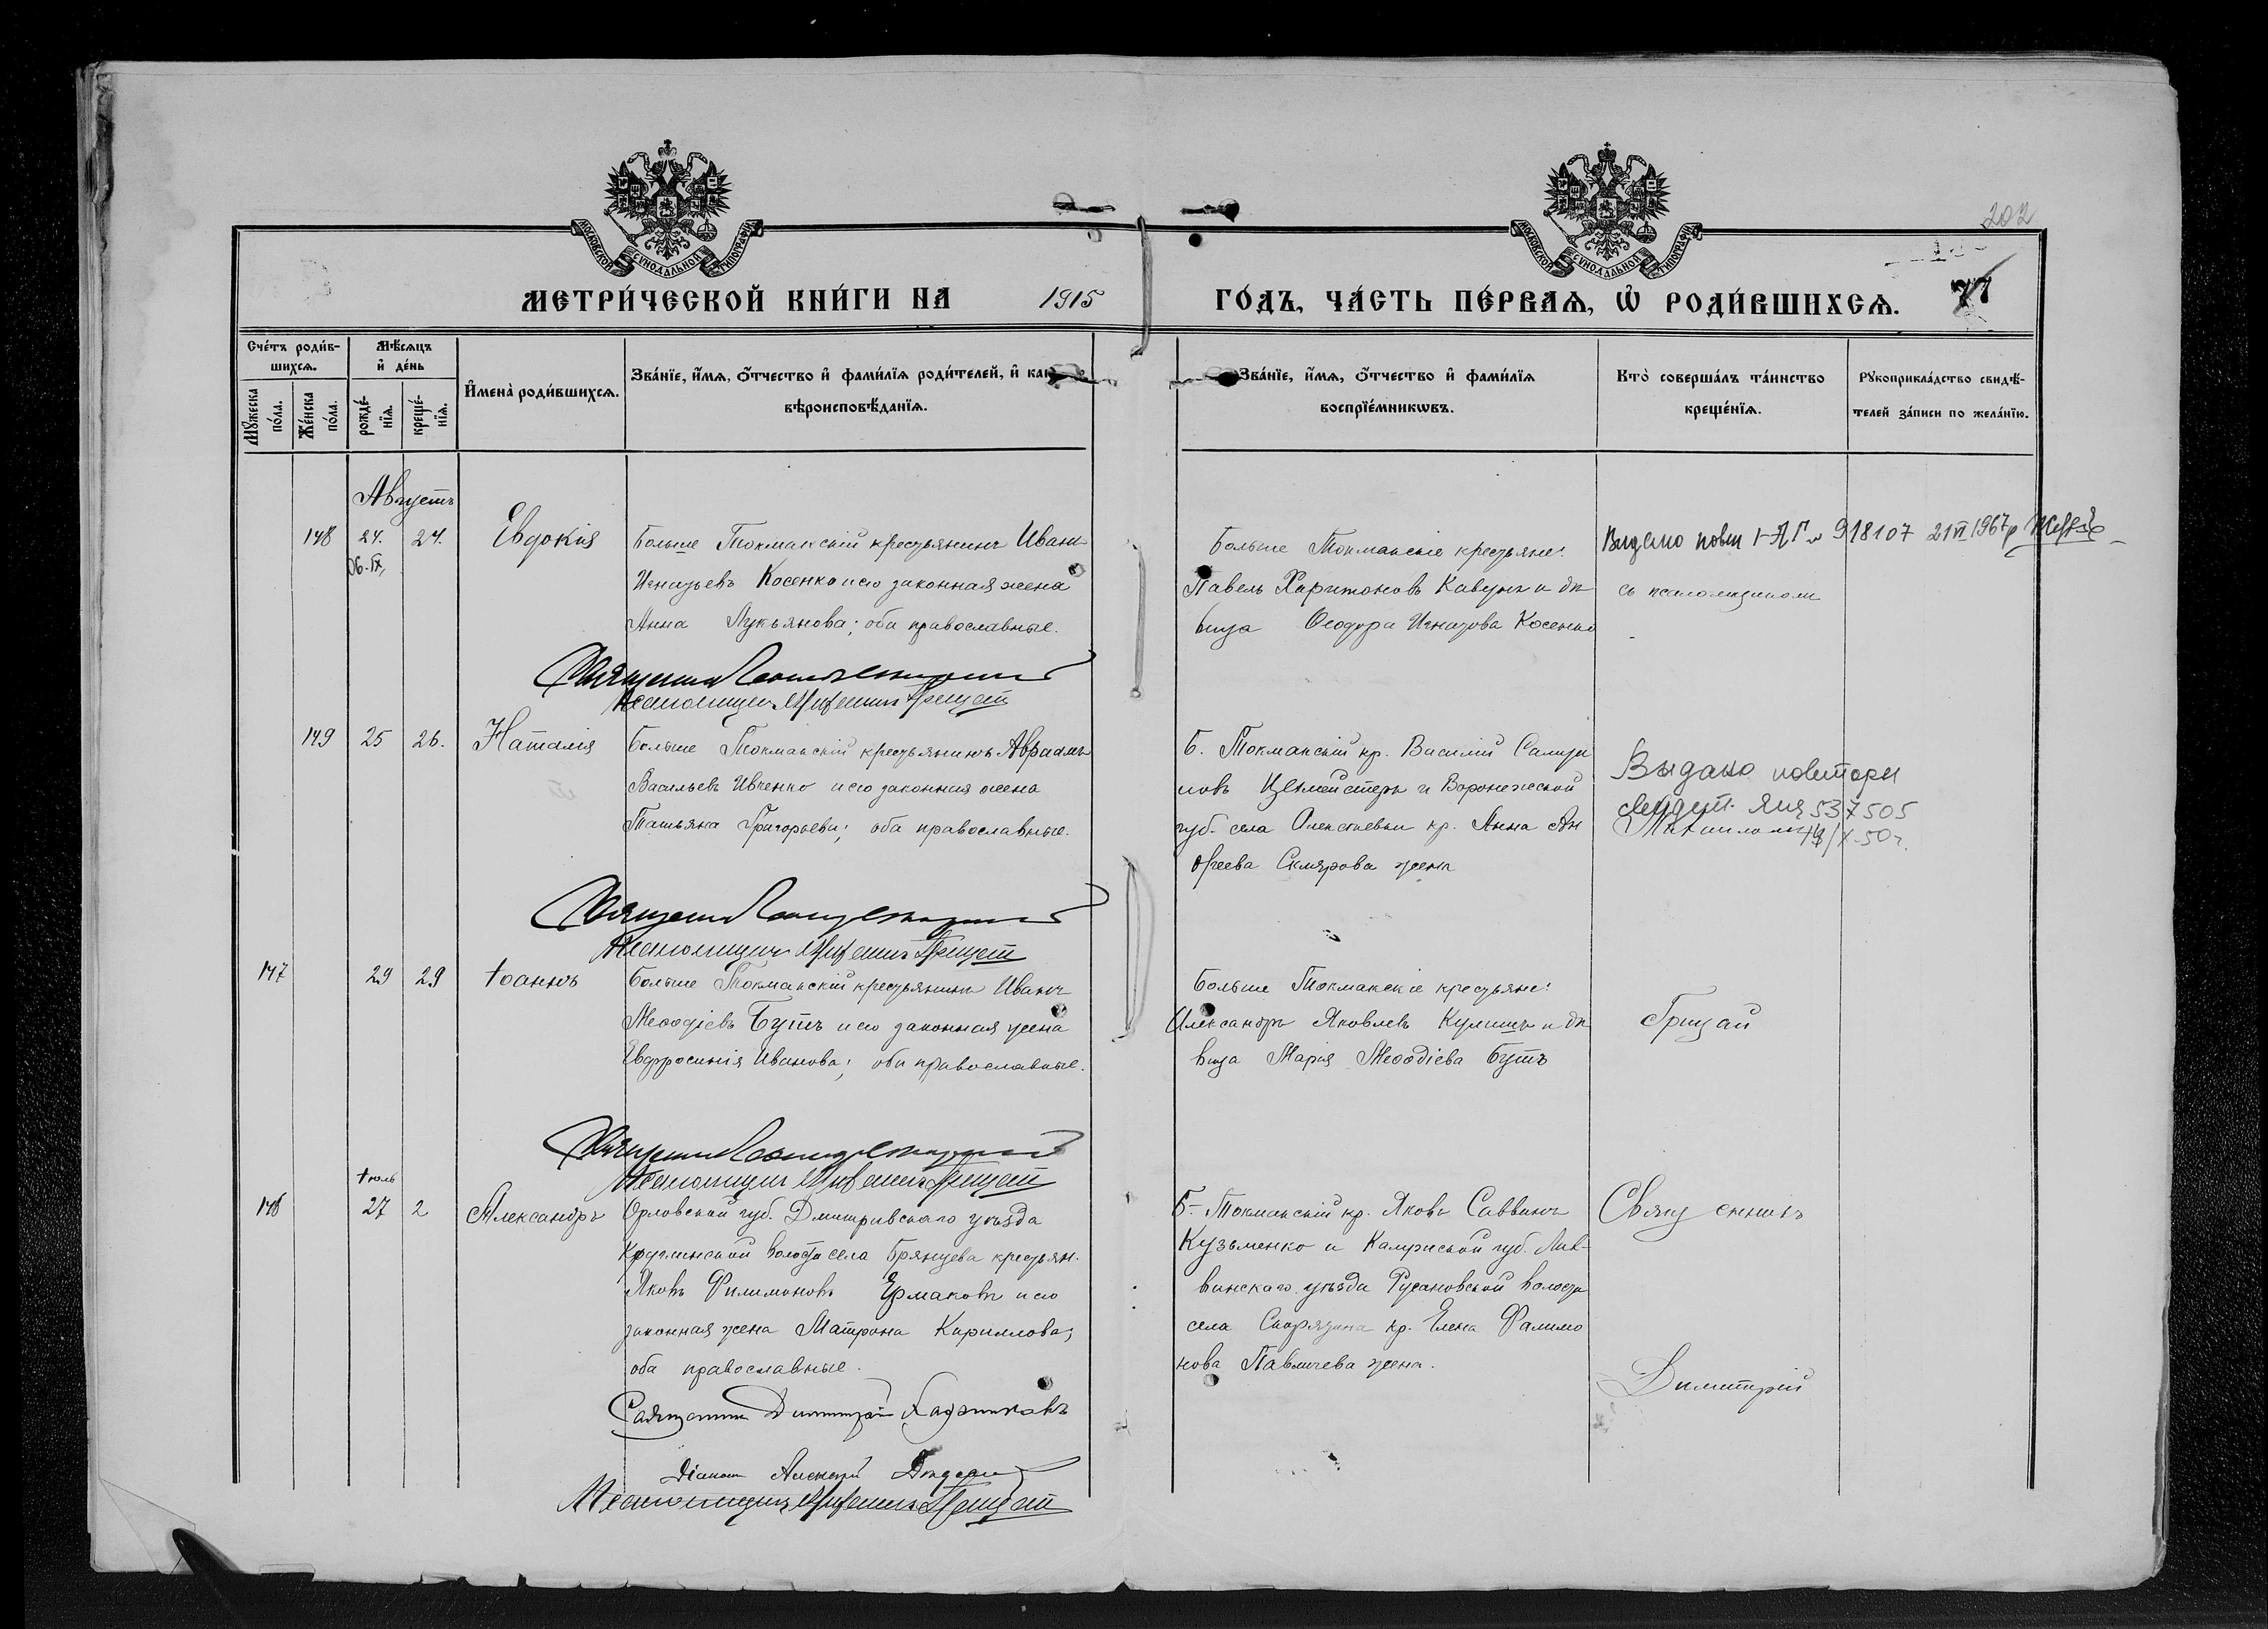 202
МОСКОВСКОЙ СѴНОДАЛЬНОЙ ТИПОГРАФІИ
МОСКОВСКОЙ СѴНОДАЛЬНОЙ ТИПОГРАФІИ
МЕТРИ́ЧЕСКОЙ КНИ́ГИ НА 1915 ГО́ДЪ, ЧА́СТЬ ПЕ́РВАѦ, Ѡ҆ РОДИ́ВШИХСѦ. 77
Сче́тъ роди́в-
шихсѧ.
Мꙋ́жеска по́ла.
Же́нска по́ла.
Мѣ́сѧцъ
и҆ де́нь
рожде́-
нїѧ.
креще́-
нїѧ.
И҆мена̀ роди́вшихсѧ.
Зва́нїе, и҆́мѧ, ѻ҆́тчество и҆ фами́лїѧ роди́телей, и҆
вѣроисповѣ́данїѧ.
Зва́нїе, и҆́мѧ, ѻ҆́тчество и҆ фами́лїѧ
воспрїе́мникѡвъ.
Кто̀ соверша́лъ та́инство
креще́нїѧ.
Рꙋкоприкла́дство свидѣ́-
телей за́писи по жела́нїю.
Августъ
148 24. 24. Евдокія
06.IX.
Больше Токмакскій крестьянинъ Иванъ
Игнатьевъ Косенко и его законная жена
Анна Лукьянова; оба православные.
Больше Токмакскіе крестьяне:
Павелъ Харитоновъ Кавунъ и дѣ
вица Ѳеодора Игнатова Косенко
Видано повт 918107 21 VI 1967р
съ псаломщикомъ
Псаломщикъ Грицай
149 25 26. Наталія
Больше Токмакскій крестьянинъ Авраамъ
Васильевъ Ивченко и его законная жена
Татьяна Григорьева; оба православные.
Б. Токмакскій кр. Василій
новъ и Воронежской
губ. села Алексѣевки кр. Анна Ан
дреева Склярова жена
Выдано повтори
свидет. ЯЦ 537505
X.50г.
Псаломщикъ Грицай
147 29 29 Іоаннъ
Больше Токмакскій крестьянинъ Иванъ
Меѳодіевъ Бутъ и его законная жена
Евфросинія Иванова; оба православные.
Больше Токмакскіе крестьяне:
Александръ Яковлевъ Кулишъ и дѣ
вица Марія Меѳодіева Бутъ
Грицай
Псаломщикъ Грицай
Іюль
148 27 2 Александръ
Орловской губ. Дмитривскаго уѣзда
волости села Брянцева крестьян.
Яковъ Филимоновъ Ермаковъ и его
законная жена Матрона Кириллова;
оба православные.
Б- Токмакскій кр. Яковъ Саввинъ
Кузьменко и Калужской губ. Лих-
винскаго уѣзда Русановской волости
села кр. Елена Филимо
нова Павличева жена.
Священникъ
Димитрій
Священникъ Димитрій
Діаконъ Алексѣй
Псаломщикъ Грицай